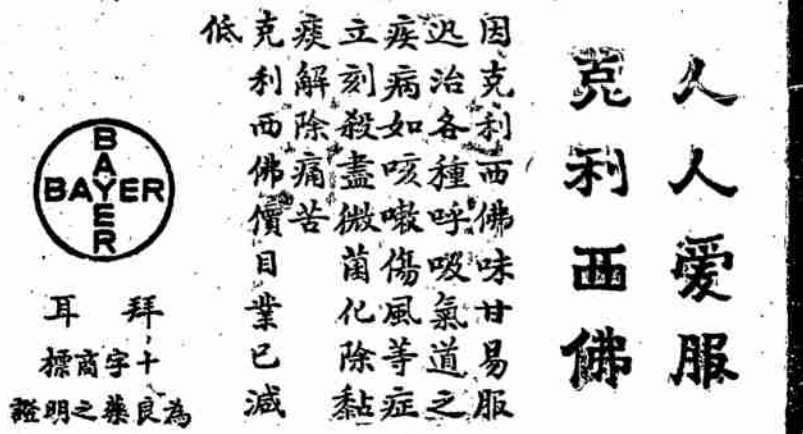 人人爱服
克利西佛
因克利西佛味甘易服
迟治各種呼吸氣道之
疾病如咳嗽傷風等症
立刻殺盡微菌化除黏
痰解除痛苦
克利西佛價目業已減
低
BAYER
BAYER
拜耳
十字商標
為良藥之明證